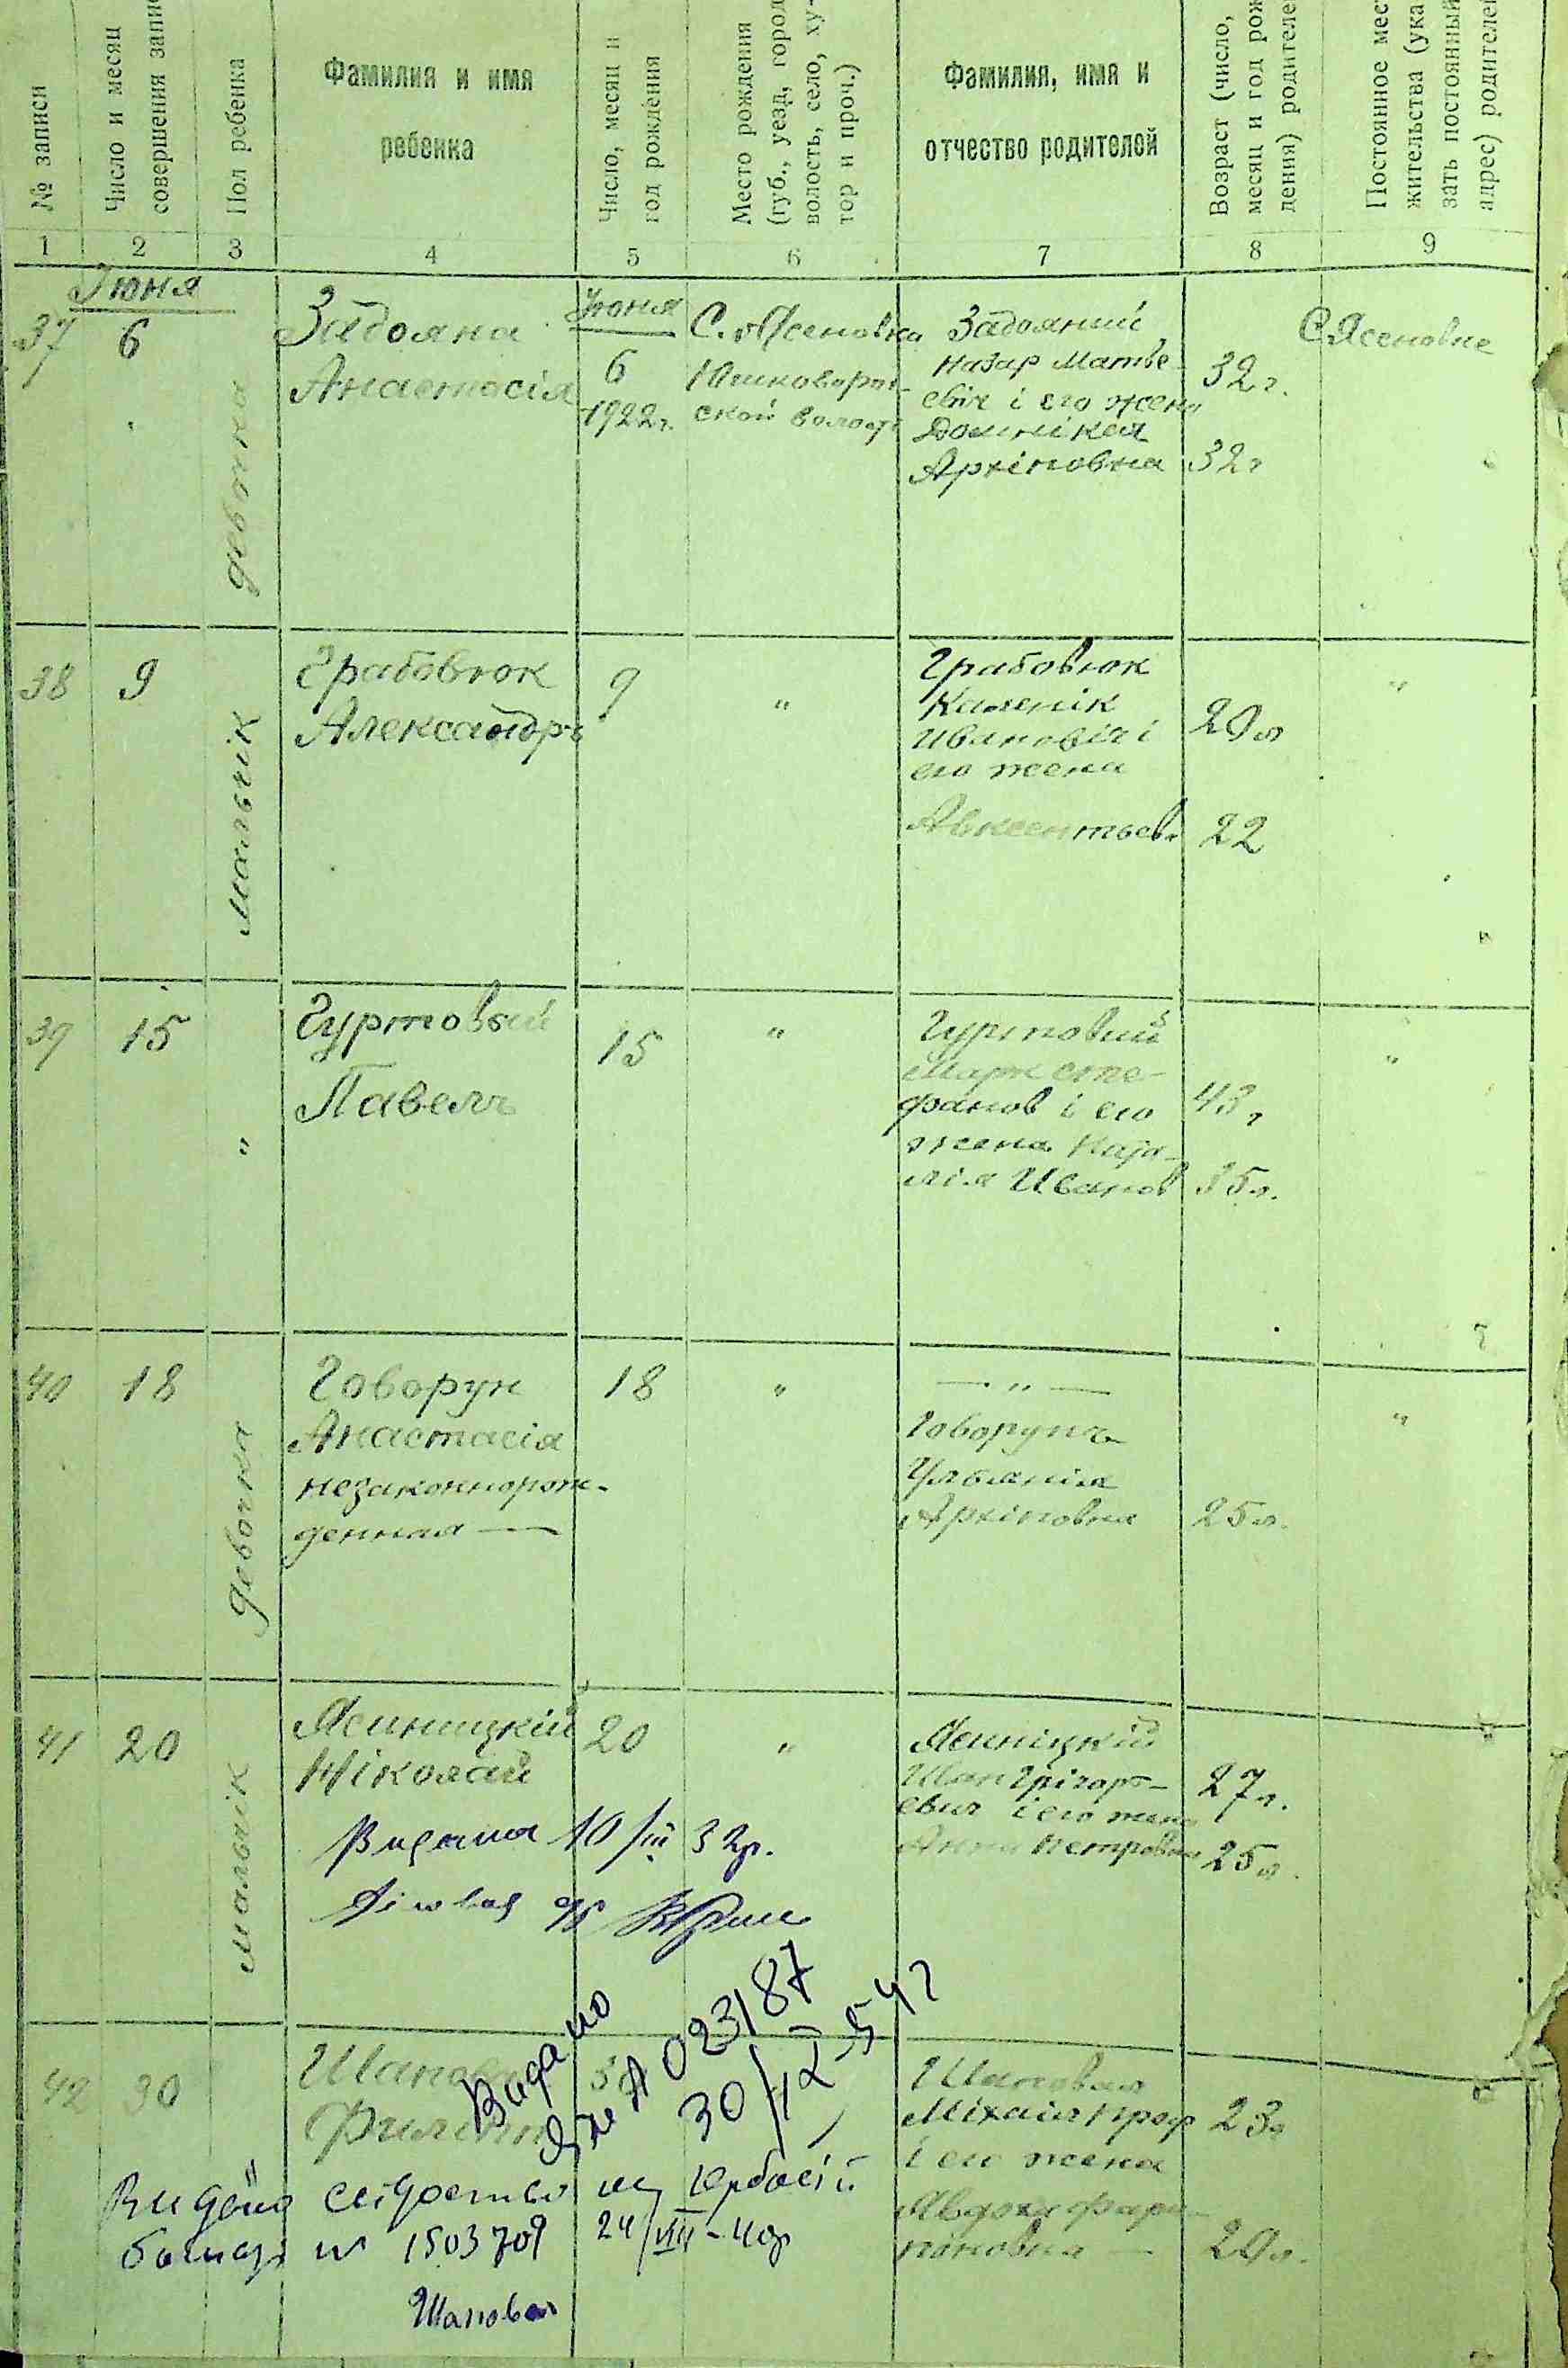 № записи
Число и месяц
совершения запис
Пол ребенка
Фамилия и имя
ребенка
Число, месяц и
год рождения
Место рождения
(губ., уезд, город
волость, село, ху-
тор и проч.)
Фамилия, имя и
отчество родителей
Возраст (число,
месяц и год рож
дения) родителе
Постоянное мес
жительства (ука
зать постоянный
адрес) родителей
1 2 3 4 5 6 7 8 9
Июня
37 6
девочка
Задояна
Анастасія
Июня
6
1922г.
С. Ясеновка
ской волості
Задояний
Назар Матве-
евіч і его жена
Домнікея
Архіповна
32г.
32г
С. Ясеновке
38 9
мальчік
Грабовюк
Александръ
9
"
Грабовюк
Каленік
Ивановіч і
его жена
Авксентьев
29л
22
"
39 15
"
Гуртовый
Павелъ
15
"
Гуртовий
Марк Сте-
фанов і его
жена
лія Иванов
43г
35л.
"
40 18
девочка
Говорун
Анастасія
незаконнорож-
денная —
18
"
— " —
Говорунъ
Ульянія
Архіповна
25л.
"
41 20
мальчік
Ясиницкій
Ніколай
20
"
Ясиніцкій
Иван Грігорь-
евич і его жена
Анна Петровна
27л.
25л.
Видана 10/III 32р.
42 30
Шаповал
Филипп
30
Шаповал
Міхаіл Проф
і его жена
Авдотя
23л
29л.
Видано
023187
30/IX-54 г
Видано свідоцтво
№ 1503709 24/VIII-40р
Шаповал